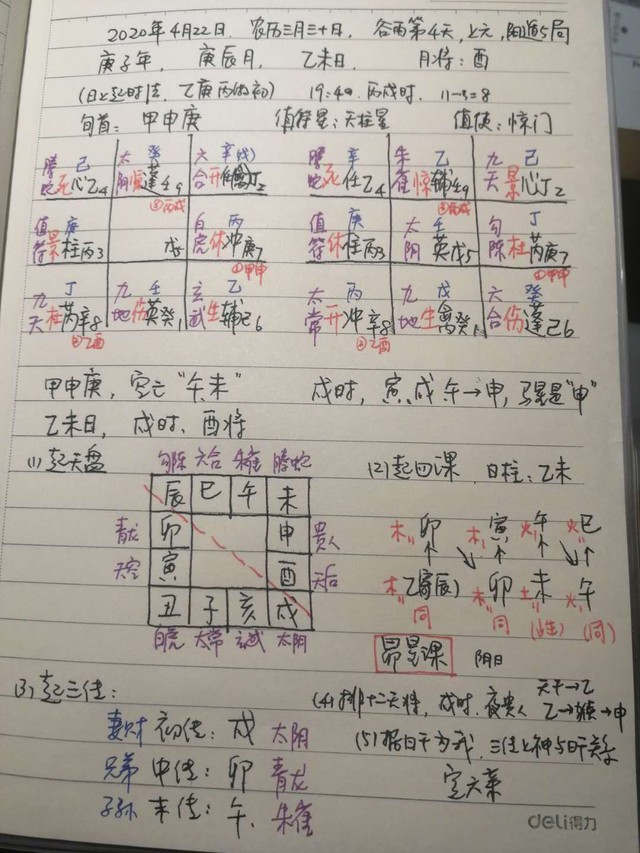 2020年4月22日. 农历三月三十日, 谷雨第4天, 上元, 阳遁5局
庚子年, 庚辰月, 乙未日, 月将:酉
(日上起时法, 乙庚丙作初) 19:49. 丙戌时, 11-3=8
旬首: 甲申庚 值符星:天柱星 值使:惊门
腾 己 太 癸 六 辛(戊) 腾 辛 朱 乙 九 己
蛇死心乙4 阴惊蓬49 合开任禽丁2 蛇死任乙4 雀惊辅49 天景心丁2
③丙戌 ③丙戌
值 庚 白 丙 值 庚 太 壬 勾 丁
符景柱丙3 戊5 虎休冲庚7 符休柱丙3 阴英戊5 陈杜芮庚7
①甲申 ①甲申
九 丁 九 壬 玄 乙 太 丙 九 戊 六 癸
天杜芮辛8 地伤英癸1 武生辅己6 常开冲辛8 地生禽癸1 合伤蓬己6
②乙酉 ②乙酉
甲申庚, 空亡“午未” 戌时, 寅戌午→申, 马星是“申”
乙未日, 戌时, 酉将
(1)起天盘 勾陈 六合 朱雀 腾蛇 (2)起四课. 日柱:乙未
辰 巳 午 未
青龙 卯 申 贵人 木卯 木寅 火午 火巳
天空 寅 酉 天后 木乙(寄辰) 木卯 土未 火午
丑 子 亥 戌 同 同 (生) (同)
白虎 太常 玄武 太阴 昴星课 阴日
(3)起三传: (4)排十二天将, 戌时, 夜贵人 天干→乙
乙→猴→申
妻财 初传:戌 太阴 (5)据日干为我, 三传上神与日干关系
兄弟 中传:卯 青龙 定六亲
子孙 末传:午. 朱雀
deli得力